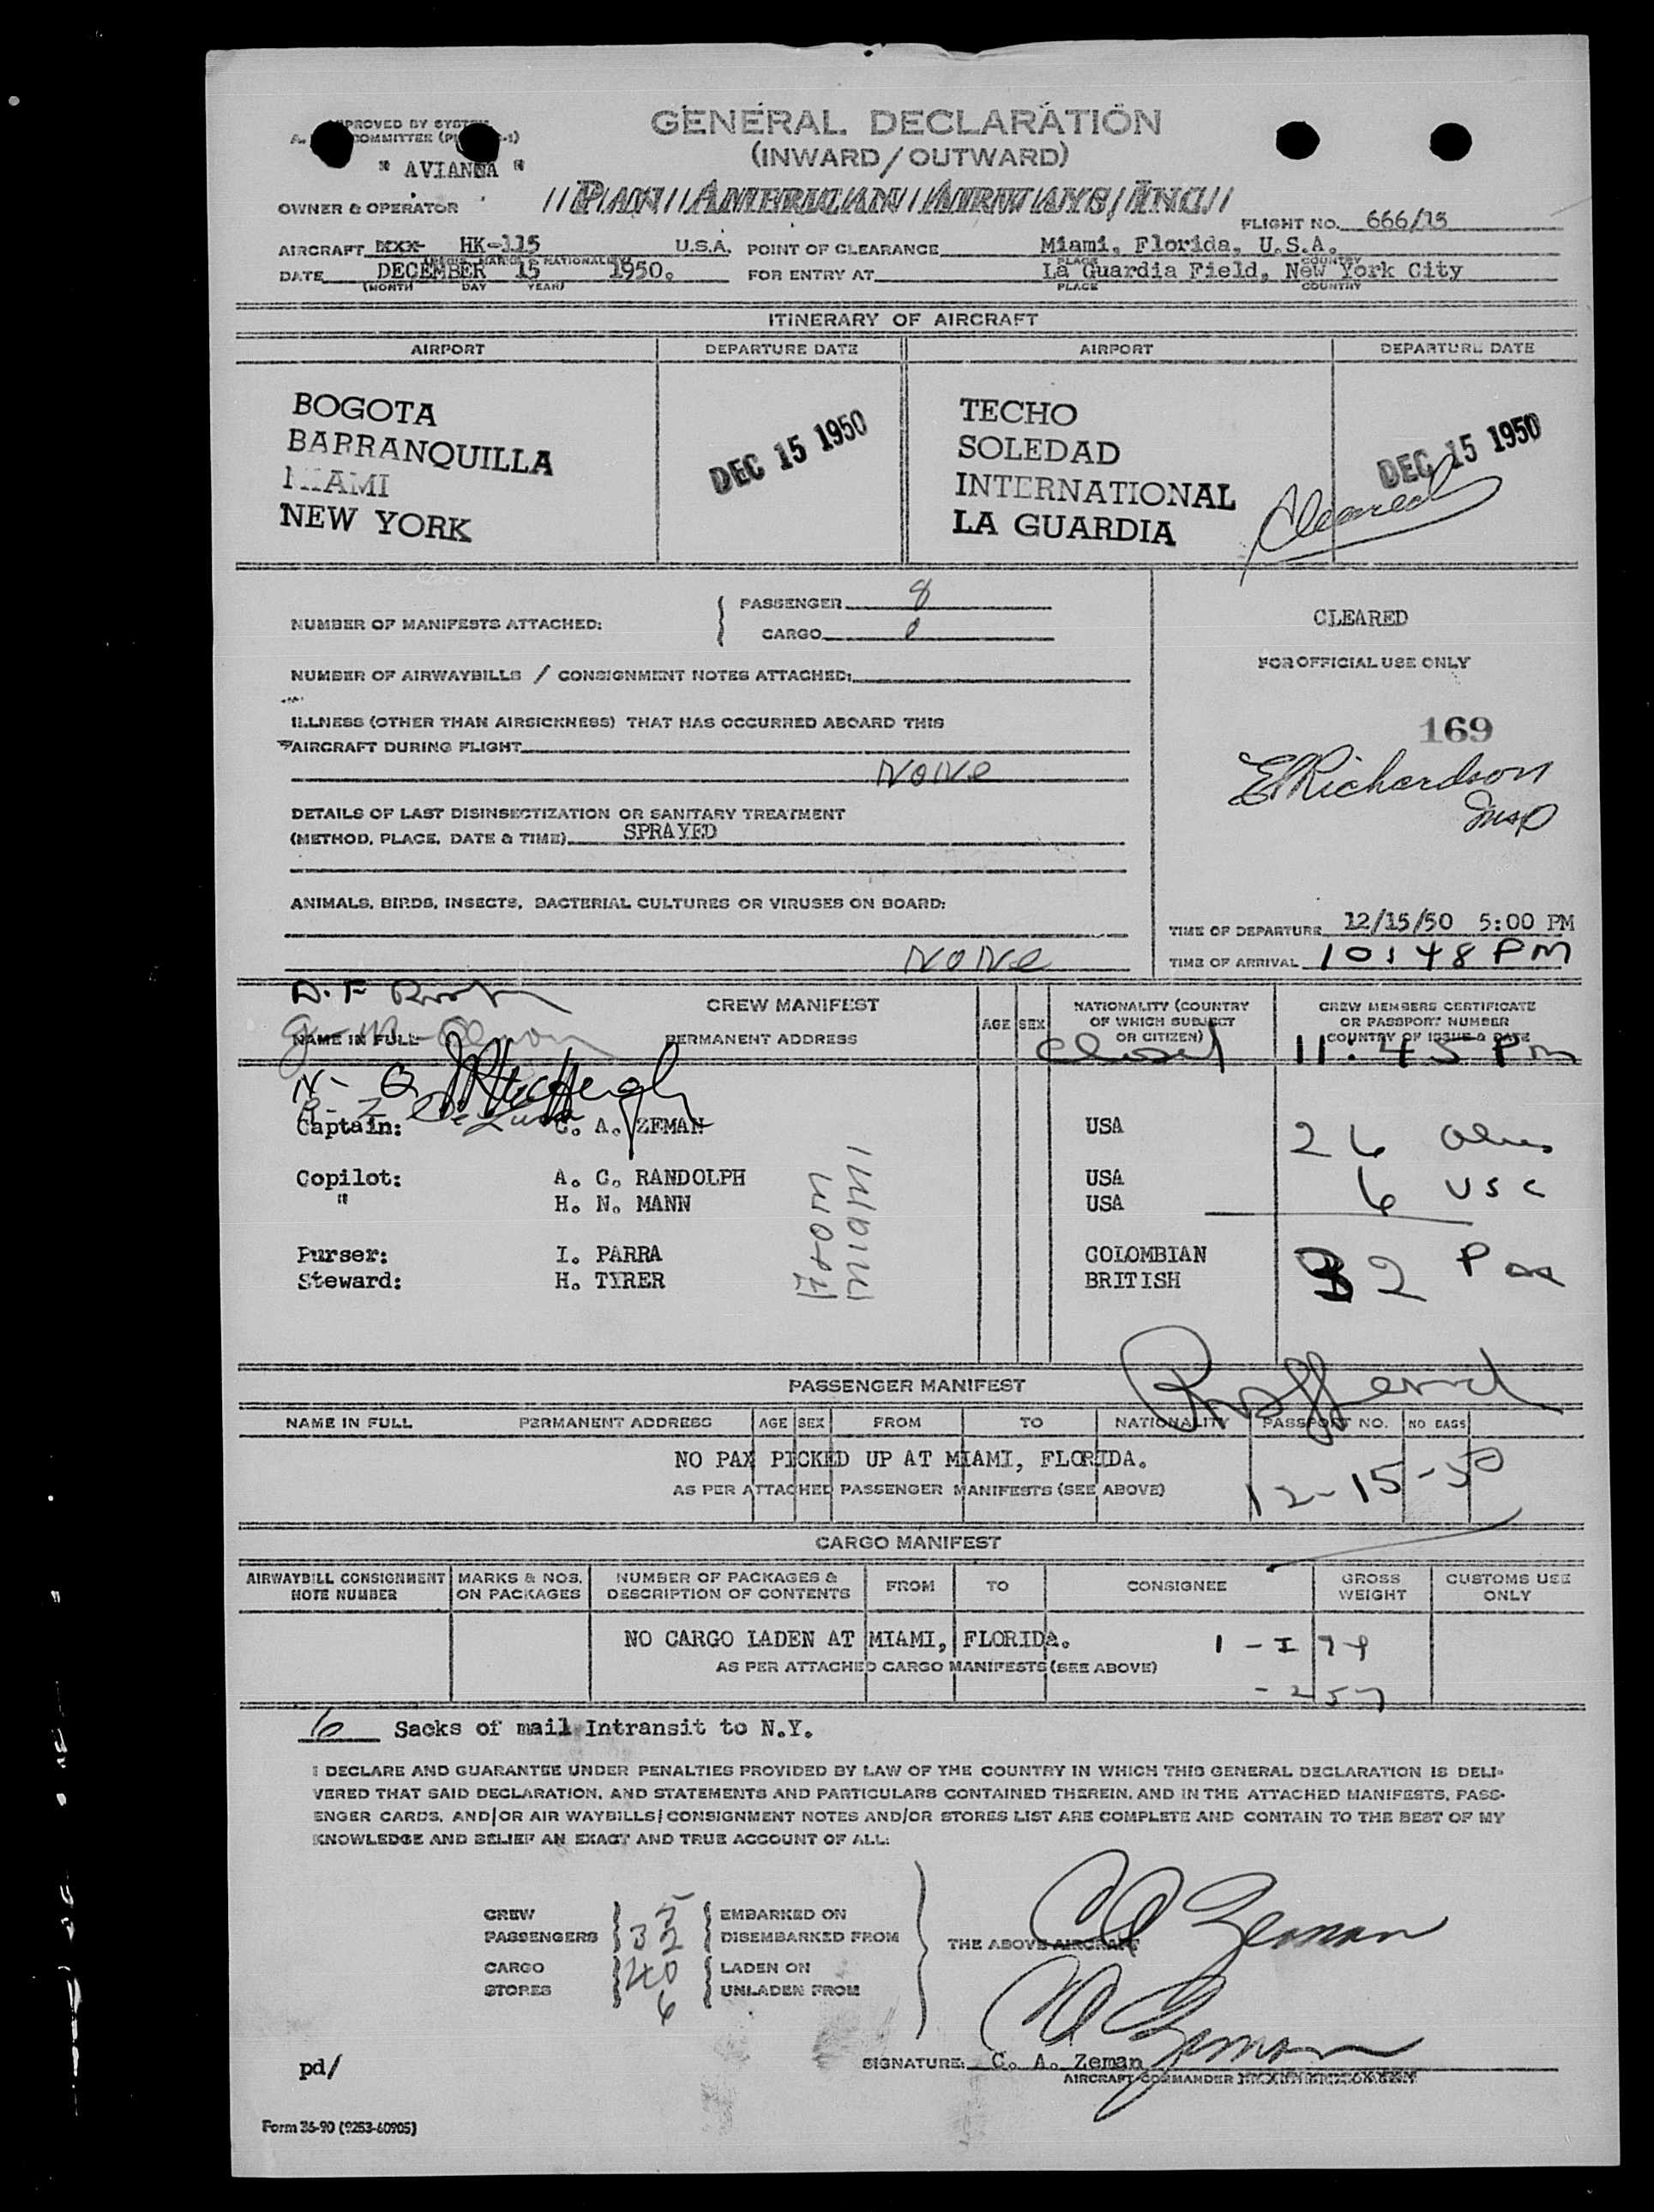 GENERAL DECLARATION
(INWARD/OUTWARD)
PROVED BY SYSTEM
COMMITTEE
" AVIANCA "
OWNER & OPERATOR PAN AMERICAN AIRWAYS, INC.
FLIGHT NO. 666/15
AIRCRAFT HK-115 U.S.A. POINT OF CLEARANCE Miami, Florida, U.S.A.
MARKS NATIONALITY PLACE COUNTRY
DATE DECEMBER 15 1950. FOR ENTRY AT La Guardia Field, New York City
(MONTH DAY YEAR) PLACE COUNTRY
ITINERARY OF AIRCRAFT
AIRPORT DEPARTURE DATE AIRPORT DEPARTURE DATE
BOGOTA TECHO
BARRANQUILLA DEC 15 1950 SOLEDAD DEC 15 1950
MIAMI INTERNATIONAL
NEW YORK LA GUARDIA Cleared
NUMBER OF MANIFESTS ATTACHED: PASSENGER 8
CARGO
CLEARED
FOR OFFICIAL USE ONLY
NUMBER OF AIRWAYBILLS / CONSIGNMENT NOTES ATTACHED:
ILLNESS (OTHER THAN AIRSICKNESS) THAT HAS OCCURRED ABOARD THIS
AIRCRAFT DURING FLIGHT
None
169
E Richardson
Insp
DETAILS OF LAST DISINSECTIZATION OR SANITARY TREATMENT
(METHOD, PLACE, DATE & TIME) SPRAYED
ANIMALS, BIRDS, INSECTS, BACTERIAL CULTURES OR VIRUSES ON BOARD:
None
TIME OF DEPARTURE 12/15/50 5:00 PM
TIME OF ARRIVAL 10:48 PM
CREW MANIFEST
NAME IN FULL PERMANENT ADDRESS AGE SEX NATIONALITY (COUNTRY OF WHICH SUBJECT OR CITIZEN) CREW MEMBERS CERTIFICATE OR PASSPORT NUMBER COUNTRY OF ISSUE & DATE
Closed 11:45 Pm
Captain: C. A. ZEMAN USA 26
Copilot: A. C. RANDOLPH USA 6 USC
" H. N. MANN USA
Purser: I. PARRA COLOMBIAN 32 Pax
Steward: H. TYRER BRITISH
From
Miami
PASSENGER MANIFEST
NAME IN FULL PERMANENT ADDRESS AGE SEX FROM TO NATIONALITY PASSPORT NO. NO BAGS
NO PAX PICKED UP AT MIAMI, FLORIDA.
AS PER ATTACHED PASSENGER MANIFESTS (SEE ABOVE)
12-15-50
CARGO MANIFEST
AIRWAYBILL CONSIGNMENT NOTE NUMBER MARKS & NOS. ON PACKAGES NUMBER OF PACKAGES & DESCRIPTION OF CONTENTS FROM TO CONSIGNEE GROSS WEIGHT CUSTOMS USE ONLY
NO CARGO LADEN AT MIAMI, FLORIDA.
AS PER ATTACHED CARGO MANIFESTS (SEE ABOVE)
6 Sacks of mail Intransit to N.Y.
I DECLARE AND GUARANTEE UNDER PENALTIES PROVIDED BY LAW OF THE COUNTRY IN WHICH THIS GENERAL DECLARATION IS DELI-
VERED THAT SAID DECLARATION, AND STATEMENTS AND PARTICULARS CONTAINED THEREIN, AND IN THE ATTACHED MANIFESTS, PASS-
ENGER CARDS, AND/OR AIR WAYBILLS/CONSIGNMENT NOTES AND/OR STORES LIST ARE COMPLETE AND CONTAIN TO THE BEST OF MY
KNOWLEDGE AND BELIEF AN EXACT AND TRUE ACCOUNT OF ALL:
CREW 5 EMBARKED ON
PASSENGERS 32 DISEMBARKED FROM
THE ABOVE AIRCRAFT CA Zeman
CARGO 40 LADEN ON
STORES 6 UNLADEN FROM
CA Zeman
SIGNATURE: C. A. Zeman
AIRCRAFT COMMANDER
pd/
Form 36-90 (9253-60905)